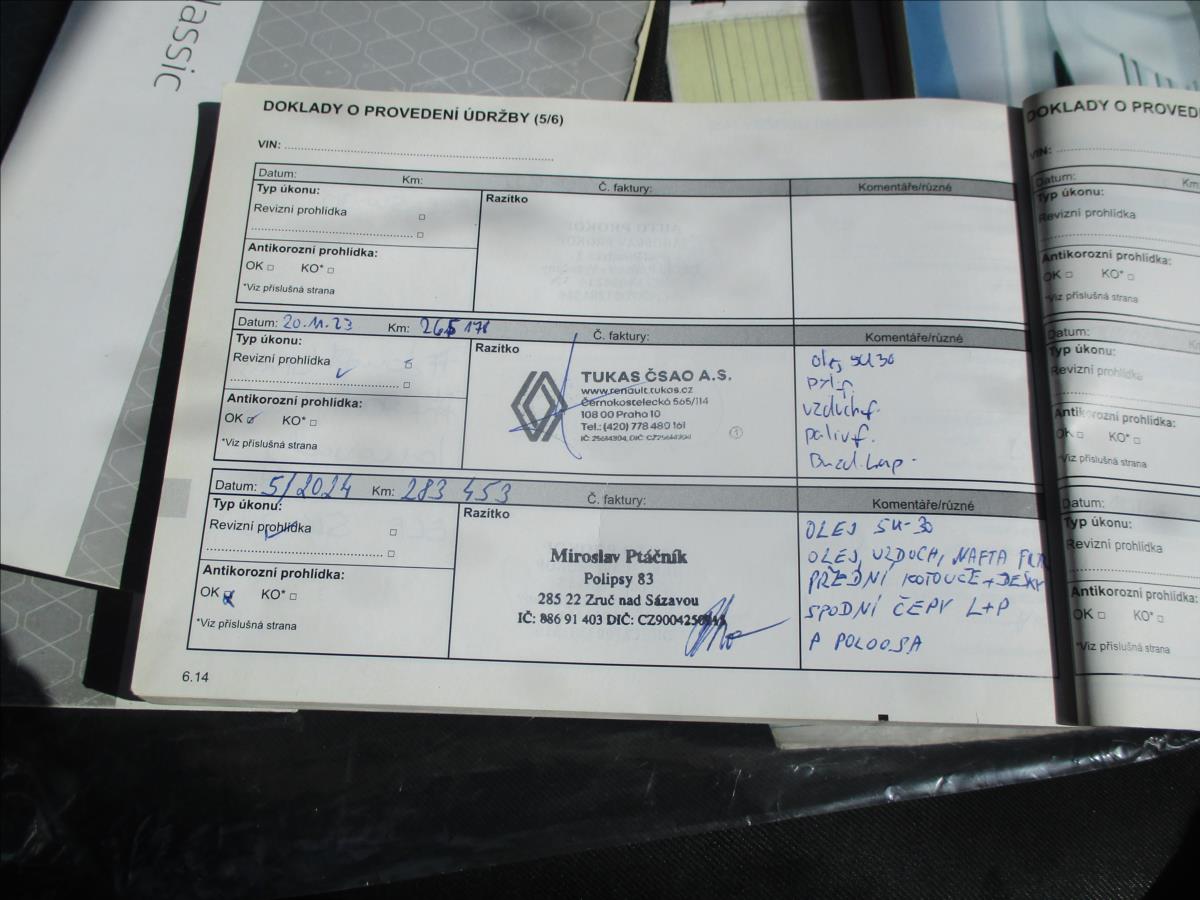 lassic
DOKLADY O PROVEDENÍ ÚDRŽBY (5/6)
VIN:
Datum: Km: Č. faktury: Komentáře/různé
Typ úkonu:
Razítko
Revizní prohlídka
Antikorozní prohlídka:
OK KO*
*Viz příslušná strana
Datum: 20.11.23 Km: 265 178 Č. faktury: Komentáře/různé
Typ úkonu:
Revizní prohlídka
Antikorozní prohlídka:
OK KO*
*Viz příslušná strana
Razítko
TUKAS ČSAO A.S.
www.renault.tukas.cz
Černokostelecká 565/114
108 00 Praho 10
Tel.: (420) 778 480 161
olej 5W30
pyl f.
vzduch f.
paliv f.
Datum: 5/2024 Km: 283 453 Č. faktury: Komentáře/různé
Typ úkonu:
Revizní prohlídka
Antikorozní prohlídka:
OK KO*
*Viz příslušná strana
Razítko
Miroslav Ptáčník
Polipsy 83
285 22 Zruč nad Sázavou
IČ: 886 91 403 DIČ:
OLEJ 5W-30
OLEJ, VZDUCH, NAFTA FILTR
PŘEDNÍ KOTOUČE + DESKY
SPODNÍ ČEPY L+P
P POLOOSA
6.14
DOKLADY O PROVEDE
VIN:
Datum: Km
Typ úkonu:
Revizní prohlídka
Antikorozní prohlídka:
OK KO*
*Viz příslušná strana
Datum:
Typ úkonu:
Revizní prohlídka
Antikorozní prohlídka:
OK KO*
*Viz příslušná strana
Datum:
Typ úkonu:
Revizní prohlídka
Antikorozní prohlídka:
OK KO*
*Viz příslušná strana